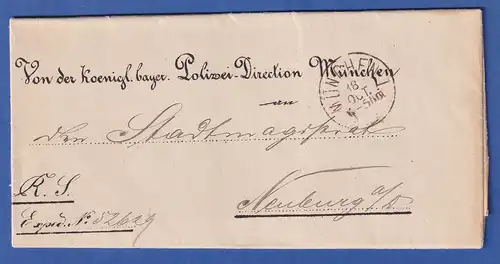 Von der Koenigl. bayer. Polizei-Direction München
MÜNCHEN I
16
OCT.
an
den Stadtmagistrat
R. S.
Neuburg a/D
Exped. No. 52629